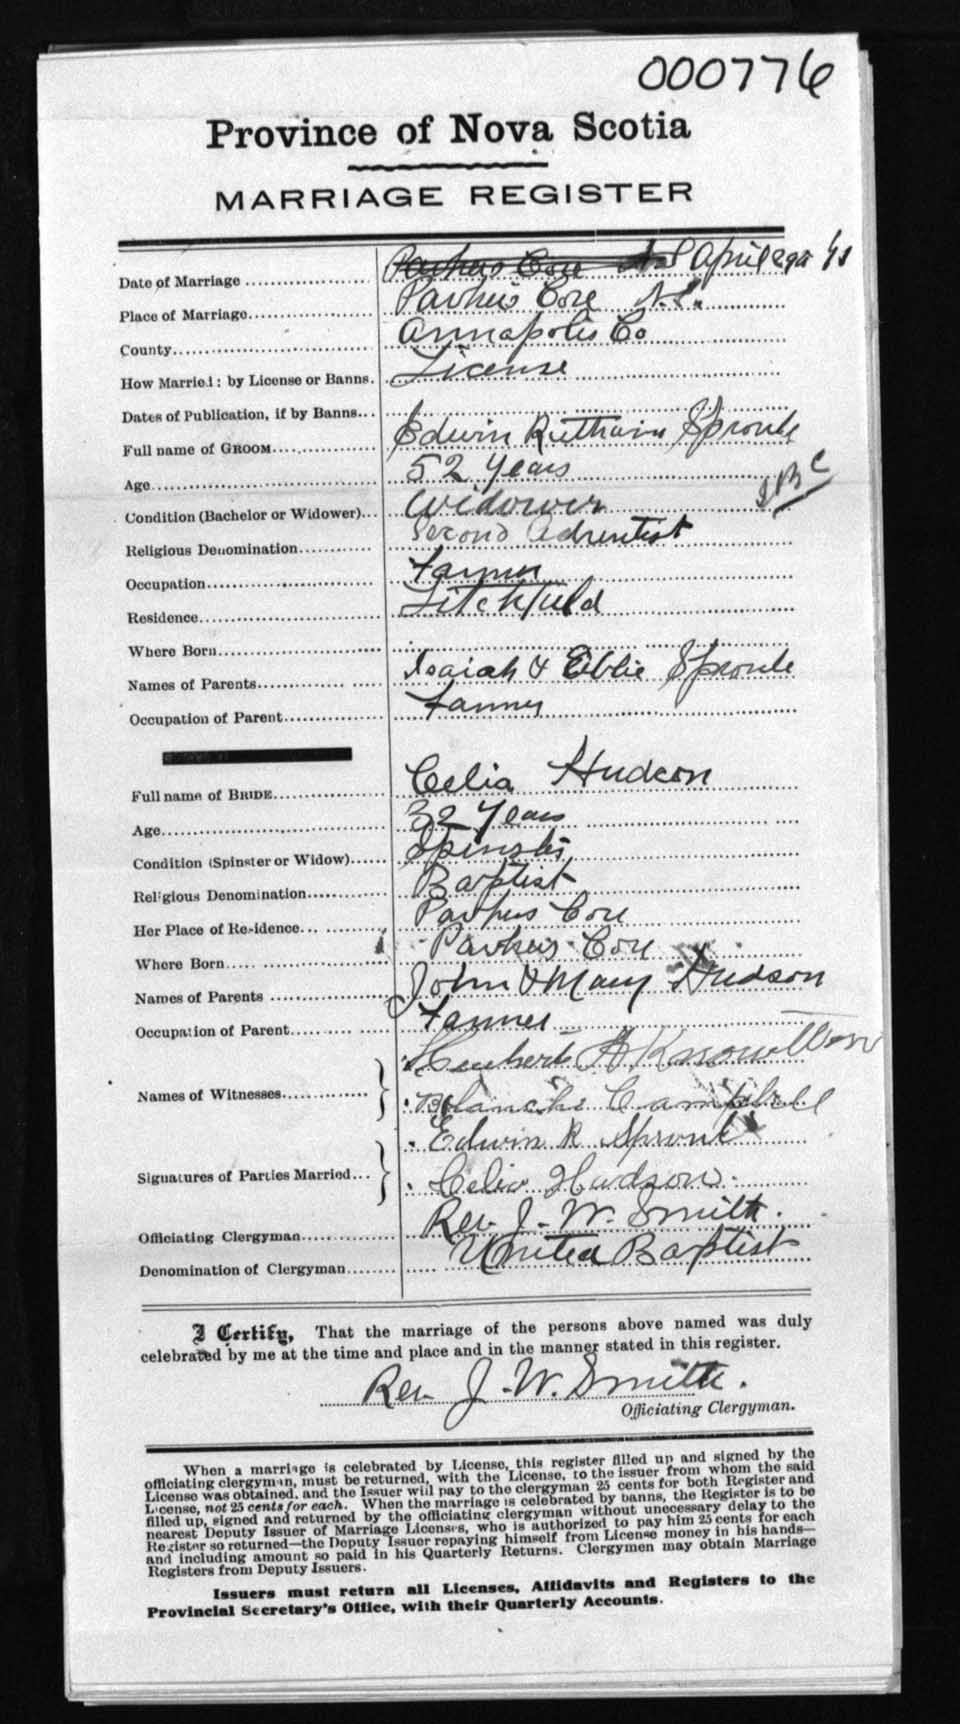 000776
Province of Nova Scotia
MARRIAGE REGISTER
Date of Marriage ........ Parkers Cove N.S April
Place of Marriage........ Parkers Cove N.S.
County........ Annapolis Co
How Married: by License or Banns. License
Dates of Publication, if by Banns...
Full name of GROOM........ Edwin Sproule
Age........ 52 Years
Condition (Bachelor or Widower)... Widower
Religious Denomination........ Second Adventist
Occupation........ Farmer
Residence........ Litchfield
Where Born........
Names of Parents........ Isaiah & Sproule
Occupation of Parent........ Farmer
Full name of BRIDE........ Celia Hudson
Age........ 32 Years
Condition (Spinster or Widow)...... Spinster
Religious Denomination........ Baptist
Her Place of Residence........ Parkers Cove
Where Born........ Parkers Cove
Names of Parents ........ John & Mary Hudson
Occupation of Parent........ Farmer
Names of Witnesses........ A. Knowlton
Blanche Campbell
Signatures of Parties Married... Edwin R Sproule
Celia Hudson.
Officiating Clergyman........ Rev. J. W. Smith.
Denomination of Clergyman........ United Baptist
I Certify, That the marriage of the persons above named was duly
celebrated by me at the time and place and in the manner stated in this register.
Rev J. W. Smith.
Officiating Clergyman.
When a marriage is celebrated by License, this register filled up and signed by the
officiating clergyman, must be returned, with the License, to the issuer from whom the said
License was obtained, and the Issuer will pay to the clergyman 25 cents for both Register and
License, not 25 cents for each. When the marriage is celebrated by banns, the Register is to be
filled up, signed and returned by the officiating clergyman without unnecessary delay to the
nearest Deputy Issuer of Marriage Licenses, who is authorized to pay him 25 cents for each
Register so returned—the Deputy Issuer repaying himself from License money in his hands—
and including amount so paid in his Quarterly Returns. Clergymen may obtain Marriage
Registers from Deputy Issuers.
Issuers must return all Licenses, Affidavits and Registers to the
Provincial Secretary's Office, with their Quarterly Accounts.